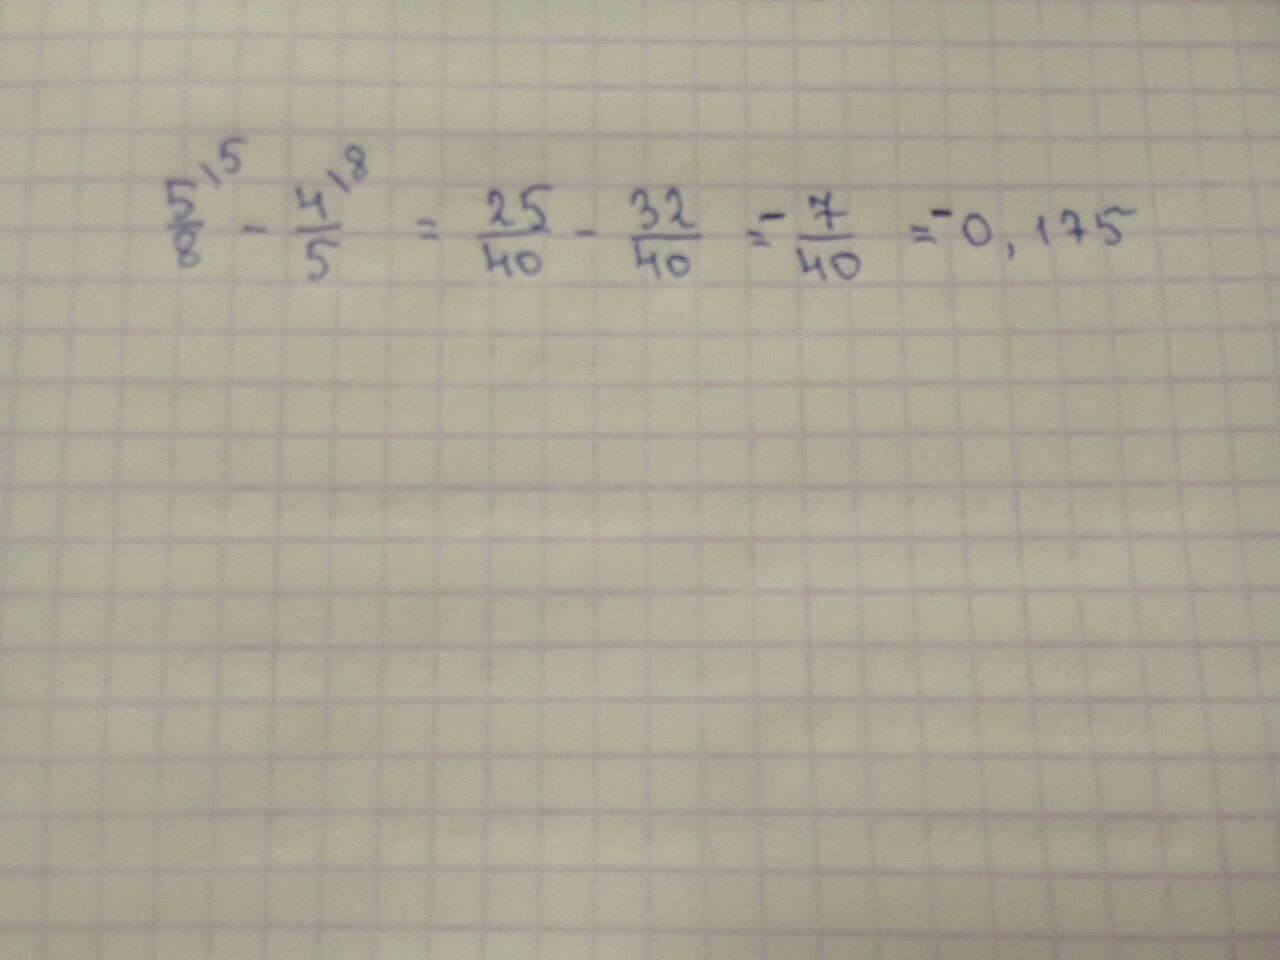 5/8 ⁵ - 4/5 ⁸ = 25/40 - 32/40 = - 7/40 = -0,175